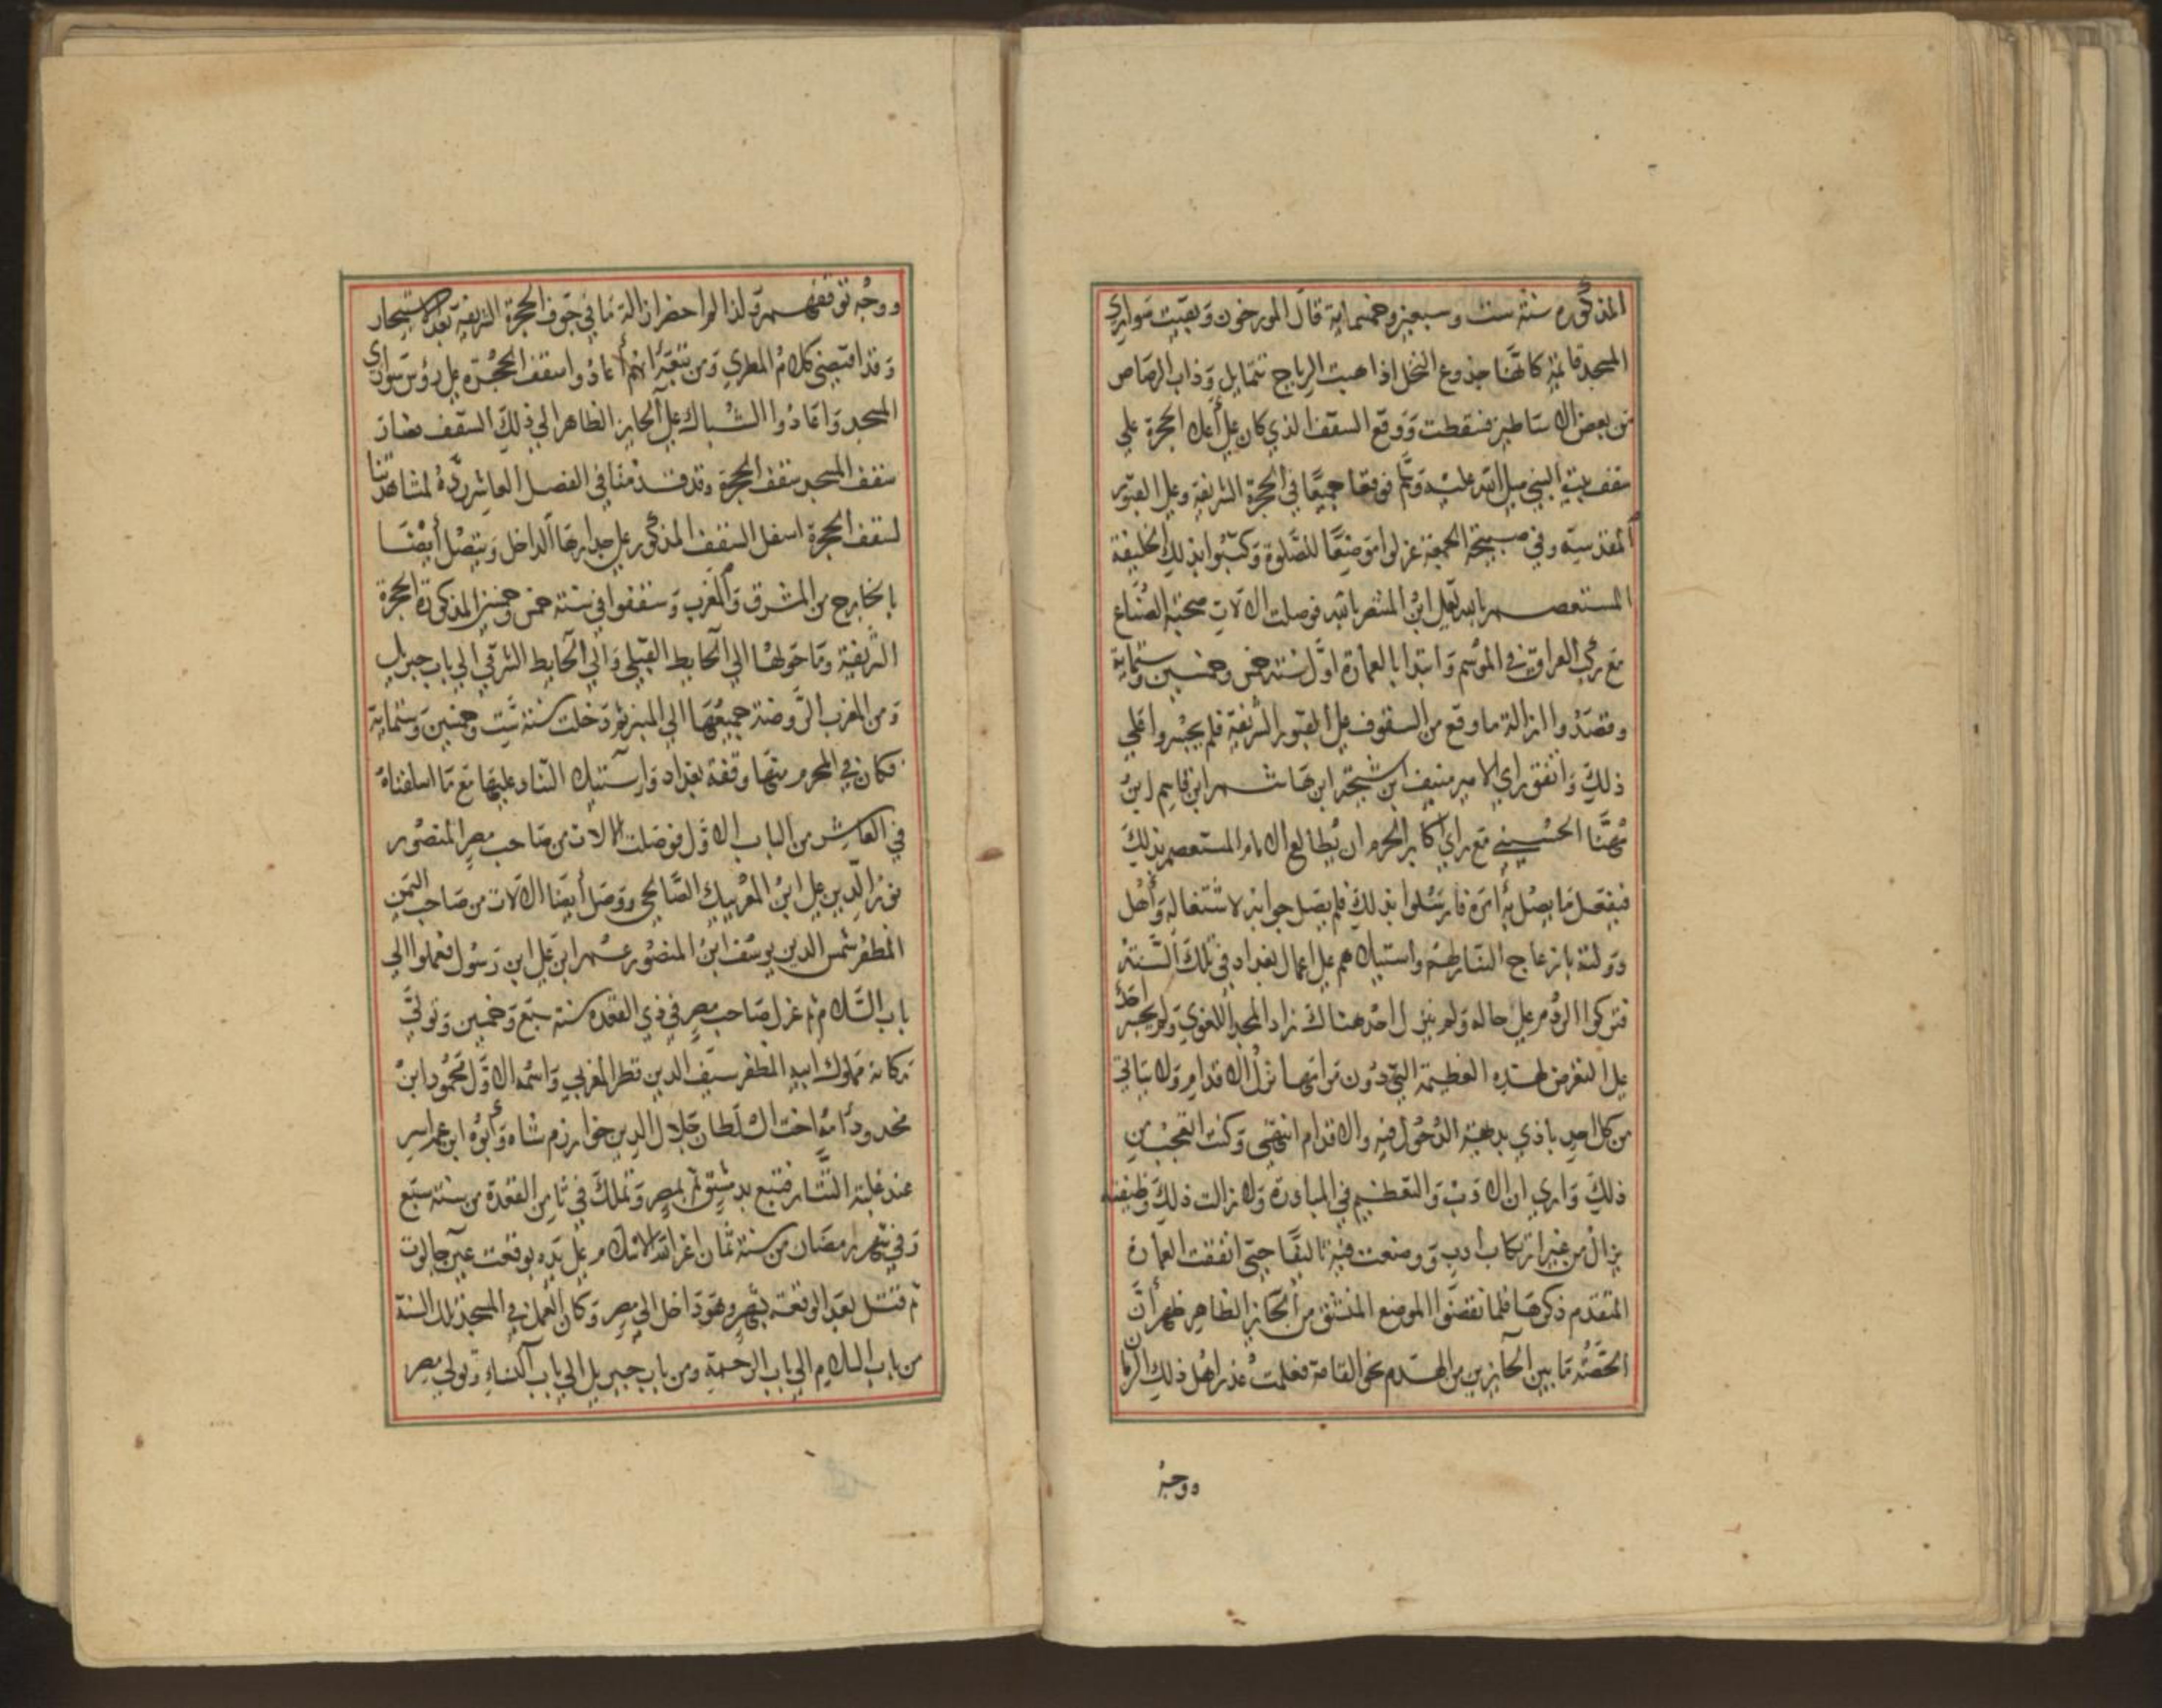 المذكوره سنة ست وسبعين وخمسماية قال المورخون وبقيت سواري
المسجد قايمة كانها جذوع النخل اذا هبت الرياح تتمايل وذاب الرصاص
من بعض الاساطين فسقطت ووقع السقف الذي كان على أعلى الحجرة على
سقف بيت النبي صلى الله عليه وسلم فوقعا جميعًا في الحجرة الشريفة وعلى القبور
المقدسة وفي صبيحة الجمعة عزلوا موضعًا للصلوة وكتبوا بذلك الخليفة
المستعصم بالله تعلى ابن المنتصر بالله فوصلت الالات صحبة الصناع
مع ركب العراق في الموسم وابتدا بالعمارة اول سنة خمس وخمسين وستماية
وقصدوا ازالة ما وقع من السقوف على القبور الشريفة فلم يجسروا على
ذلك واتفق راي الامير منيف ابن شيحة ابن هاشم ابن قاسم ابن
مهنّا الحسيني مع راي اكابر الحرم ان يطالع الامام المستعصم بذلك
فيفعل ما يصل به امره فارسلوا بذلك فلم يصل جوابه لاشتغاله وأهل
دولته بازعاج التتار لهم واستيلاهم على اعمال بغداد في تلك السنة
فتركوا الردم على حاله ولم ينزل احد هناك زاد المجد اللغوي ولم يجسر أحد
على التعرض لهذه العظيمة التي دون مرامها تزل الاقدام ولا يتاتى
من كل احد بادي بدهية الدخول فيه والاقدام انتهى وكنت اتعجب من
ذلك وارى ان الادب والتعظيم في المبادرة ولا زالت ذلك وظيفه
يزال من غير ارتكاب ادب ووضعت فيه تاليفًا حتى اتفقت العمارة
المتقدم ذكرها فلما نقضوا الموضع المنشق من الحايز الظاهر ظهر أن
الحقته ما بين الحايزين من الهدم نحو القامة فعلمت عذر اهل ذلك الزمان
ووجه
ووجه توقفهم ولذا لوا حضر ازالة ما في جوف الحجرة الشريفة بعد الاستيجار
وقد اقتضى كلام المطري ومن تبعه انهم أعادوا سقف الحجرة على رؤس سواري
المسجد واعادوا الشباك على الحايز الظاهر الى ذلك السقف فصار
سقف المسجد سقف الحجرة وقد قدمنا في الفصل العاشر رده لمشاهدتنا
لسقف الحجرة اسفل السقف المذكور على جدارها الداخل ويتصل أيضا
بالخارج من المشرق والمغرب وسقفوا في سنة خمس وخمسين المذكورة الحجرة
الشريفة وما حولها الى الحايط القبلي والى الحايط الشرقي الى باب جبريل
ومن المغرب الروضة جميعها الى المنبر ثم دخلت سنة ست وخمسين وستماية
فكان في المحرم منها وقعة بغداد واستيلاء التتار عليها مع ما اسلفناه
في العاشر من الباب الاول فوصلت الالات من صاحب مصر المنصور
نور الدين علي ابن المعز ايبك الصالحي ووصل أيضا الالات من صاحب اليمن
المظفر شمس الدين يوسف ابن المنصور عمر ابن علي ابن رسول فعملوا الى
باب السلام ثم عزل صاحب مصر في ذي القعدة سنة سبع وخمسين وتولى
مكانه مملوك ابيه المظفر سيف الدين قطز المعزي واسمه الاول محمود ابن
ممدود أمه اخت السلطان جلال الدين خوارزم شاه وأبوه ابن عم اسر
عند غلبة التتار فبيع بدمشق ثم بمصر وتملك في ثامن القعدة من سنة سبع
وفي شهر رمضان من سنة ثمان اعز الله الاسلام على يده بوقعت عين جالوت
ثم قتل بعد الوقعة بشهر وهو داخل الى مصر وكان العمل في المسجد تلك السنة
من باب السلام الى باب الرحمة ومن باب جبريل الى باب النساء وتولي مصر